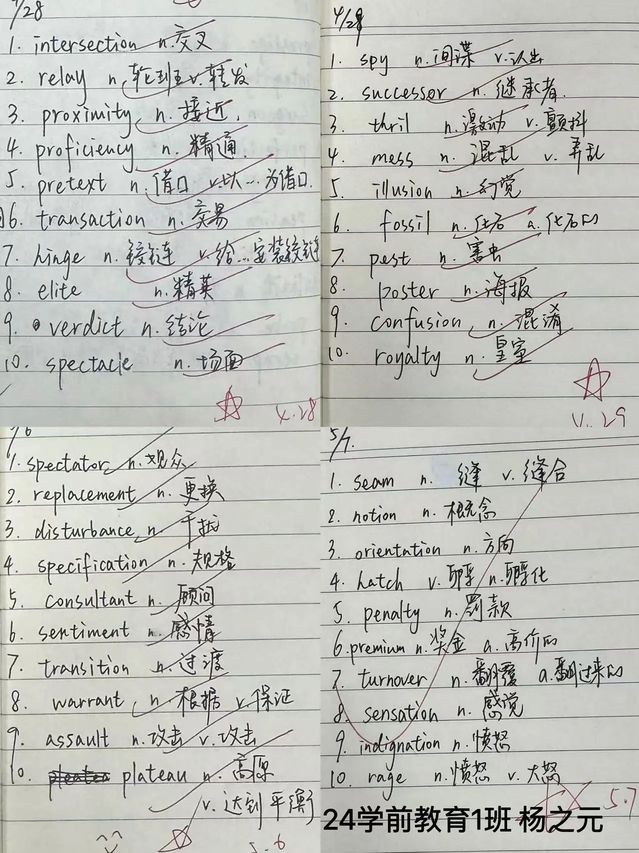 /28
1. intersection n.交叉
2. relay n.轮班 v.转发
3. proximity n.接近.
4. proficiency n.精通.
5. pretext n.借口 v.以…为借口.
6. transaction n.交易
7. hinge n.铰链 v.给…安装铰链
8. elite n.精英
9. verdict n.结论
10. spectacle n.场面
4.28
4/29
1. spy n.间谍 v.认出
2. successor n.继承者.
3. thril n.激动 v.颤抖
4. mess n.混乱 v.弄乱
5. illusion n.幻觉
6. fossil n.化石 a.化石的
7. pest n.害虫
8. poster n.海报
9. confusion n.混淆
10. royalty n.皇室
V..29
/6
1. spectator n.观众
2. replacement n.更换
3. disturbance n.干扰
4. specification n.规格
5. consultant n.顾问
6. sentiment n.感情
7. transition n.过渡
8. warrant n.根据 v.保证
9. assault n.攻击 v.攻击
10. plateau n.高原
v.达到平衡
5.6
5/7.
1. seam n.缝 v.缝合
2. notion n.概念
3. orientation n.方向
4. hatch v.孵 n.孵化
5. penalty n.罚款
6. premium n.奖金 a.高价的
7. turnover n.翻覆 a.翻过来的
8. sensation n.感觉
9. indignation n.愤怒
10. rage n.愤怒 v.大怒
5.7
24学前教育1班 杨之元